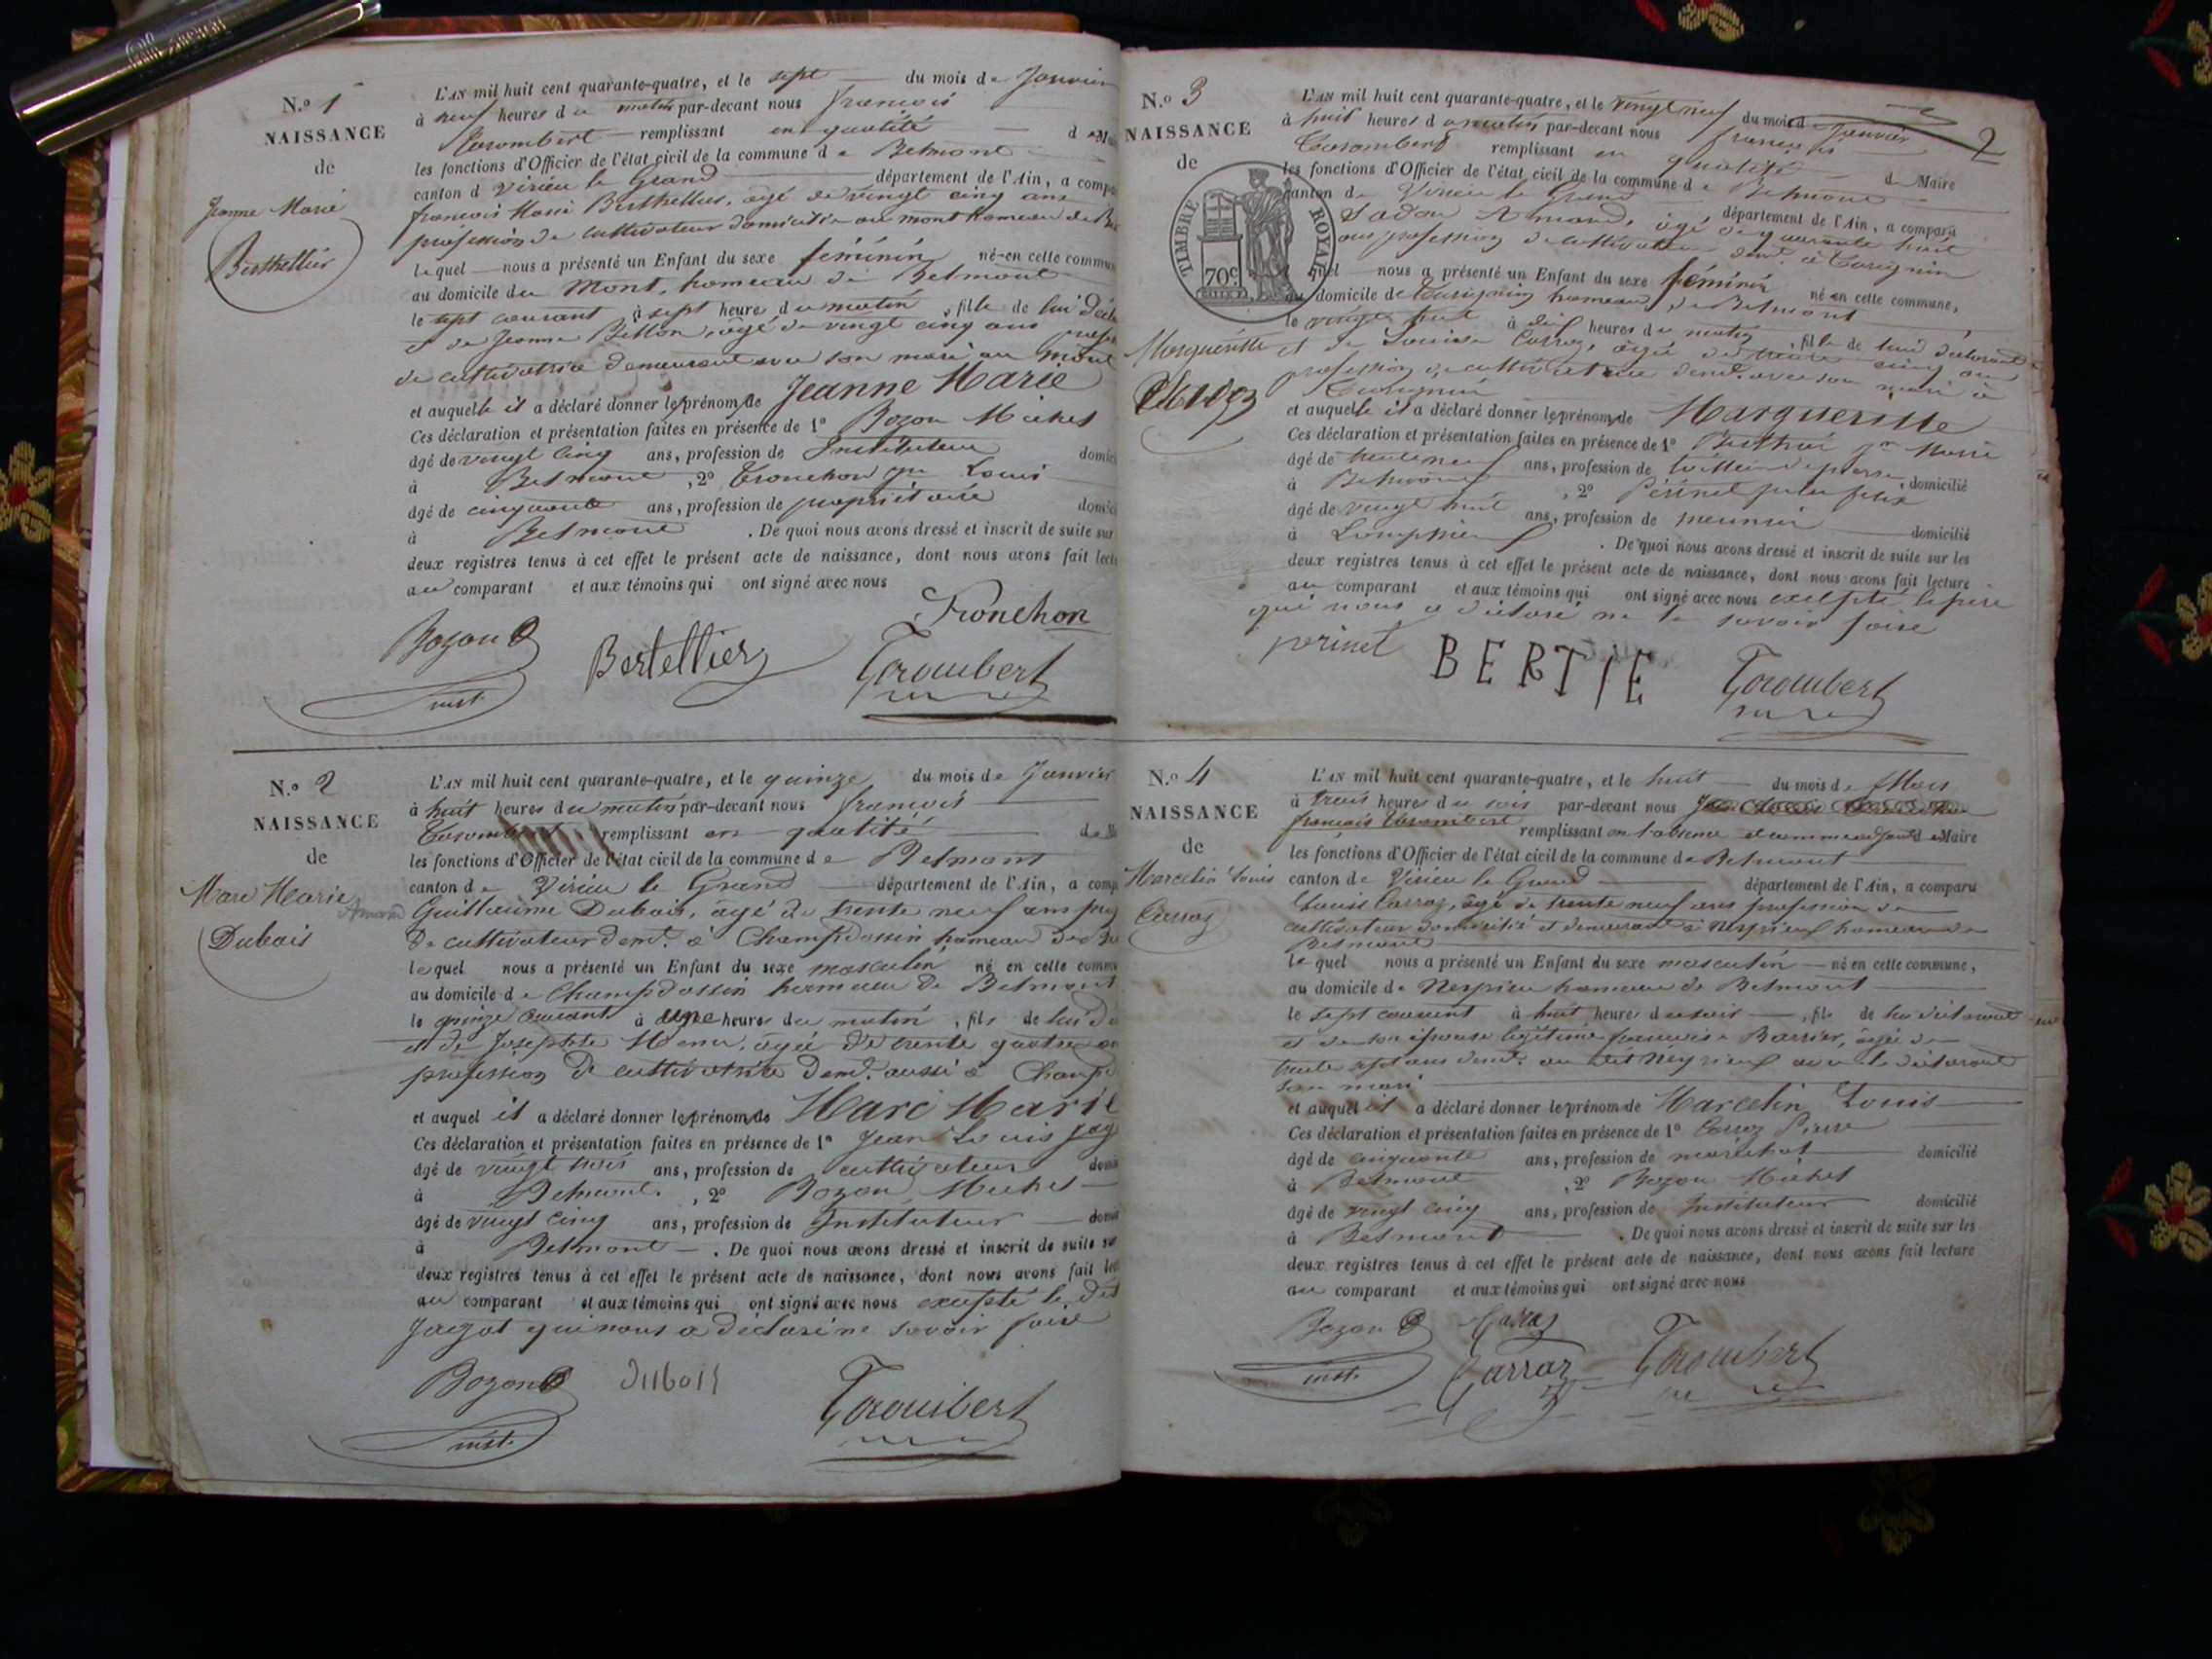 N.º 1
NAISSANCE
de
Jeanne Marie
Berthellier
L'AN mil huit cent quarante-quatre, et le sept du mois de Janvier
à neuf heures du matin par-devant nous françois
Trombert remplissant en qualité d
les fonctions d'Officier de l'état civil de la commune de Belmont
canton d Virieu le Grand département de l'Ain, a comp
françois Marie Berthellier, agé de vingt cinq ans
profession de cultivateur domicilié au mont hameau de
lequel nous a présenté un Enfant du sexe féminin né en cette commun
au domicile du Mont, hameau de Belmont
le sept courant à sept heures du matin, fille de lui décl
et de Jeanne Billon, agé de vingt cinq ans profes
de cultivatrice demeurant avec son mari au mont
et auquelle il a déclaré donner le prénom de Jeanne Marie
Ces déclaration et présentation faites en présence de 1º Bozon Michel
âgé de vingt cinq ans, profession de Instituteur domici
à Belmont, 2º Tronchon Louis
âgé de cinquante ans, profession de propriétaire domici
à Belmont. De quoi nous avons dressé et inscrit de suite sur
deux registres tenus à cet effet le présent acte de naissance, dont nous avons fait lect
au comparant et aux témoins qui ont signé avec nous
Tronchon
Bozon Bertellier Trombert
inst.
N.º 2
NAISSANCE
de
Marc Marie
Armand
Dubois
L'AN mil huit cent quarante-quatre, et le quinze du mois de Janvier
à huit heures du matin par-devant nous françois
remplissant en qualité de
les fonctions d'Officier de l'état civil de la commune de Belmont
canton de Virieu le Grand département de l'Ain, a comp
Guillaume Dubois, agé de trente neuf ans
de cultivateur demt. à Champdossin hameau de
lequel nous a présenté un Enfant du sexe masculin né en cette comm
au domicile de Champdossin hameau de Belmont
le quinze courant à une heures du matin, fils de lui d
et de Josephte, agée de trente quatre an
profession de cultivatrice demt. aussi à Champd
et auquel il a déclaré donner le prénom de Marc Marie
Ces déclaration et présentation faites en présence de 1º Jean Louis
âgé de vingt trois ans, profession de cultivateur domi
à Belmont, 2º Bozon Michel
âgé de vingt cinq ans, profession de Instituteur domi
à Belmont. De quoi nous avons dressé et inscrit de suite su
deux registres tenus à cet effet le présent acte de naissance, dont nous avons fait lec
au comparant et aux témoins qui ont signé avec nous excepté le dit
qui nous a déclaré ne savoir faire
Bozon Dubois Trombert
inst.
2
N.º 3
NAISSANCE
de
Margueritte
L'AN mil huit cent quarante-quatre, et le vingt neuf du mois d Janvier
à huit heures d matin par-devant nous françois
Trombert remplissant en qualité de Maire
les fonctions d'Officier de l'état civil de la commune de Belmont
canton de Virieu le Grand département de l'Ain, a comparu
Armand, agé de quarante huit
ans profession de cultivateur demt. à
TIMBRE ROYAL
70c.
quel nous a présenté un Enfant du sexe féminin né en cette commune,
au domicile de hameau de Belmont
le vingt huit à dix heures du matin, fille de lui déclarant
et de Louise Carroz, agée de trente cinq ans
profession de cultivatrice demt. avec son mari à
et auquelle il a déclaré donner le prénom de Margueritte
Ces déclaration et présentation faites en présence de 1º Marie
âgé de trente neuf ans, profession de tailleur de pierre domicilié
à Belmont, 2º
âgé de vingt huit ans, profession de meunier domicilié
à. De quoi nous avons dressé et inscrit de suite sur les
deux registres tenus à cet effet le présent acte de naissance, dont nous avons fait lecture
au comparant et aux témoins qui ont signé avec nous excepté le père
qui nous a déclaré ne le savoir faire
perinet BERTIE Trombert
N.º 4
NAISSANCE
de
Marcelin Louis
Carroz
L'AN mil huit cent quarante-quatre, et le huit du mois de Mars
à trois heures du soir par-devant nous
françois Trombert remplissant en l'absence de Maire
les fonctions d'Officier de l'état civil de la commune de Belmont
canton de Virieu le Grand département de l'Ain, a comparu
Louis Carroz, agé de trente neuf ans profession de
cultivateur domicilié et demeurant à Neyrieu hameau de
Belmont
lequel nous a présenté un Enfant du sexe masculin né en cette commune,
au domicile de Neyrieu hameau de Belmont
le sept courant à huit heures du soir, fils de lui déclarant
et de son épouse légitime françoise Barrier, agée de
trente sept ans demt. au dit Neyrieu avec le déclarant
son mari
et auquel il a déclaré donner le prénom de Marcelin Louis
Ces déclaration et présentation faites en présence de 1º Carroz Pierre
âgé de cinquante ans, profession de maréchal domicilié
à Belmont, 2º Bozon Michel
âgé de vingt cinq ans, profession de Instituteur domicilié
à Belmont. De quoi nous avons dressé et inscrit de suite sur les
deux registres tenus à cet effet le présent acte de naissance, dont nous avons fait lecture
au comparant et aux témoins qui ont signé avec nous
Bozon Carroz
inst. Carraz Trombert